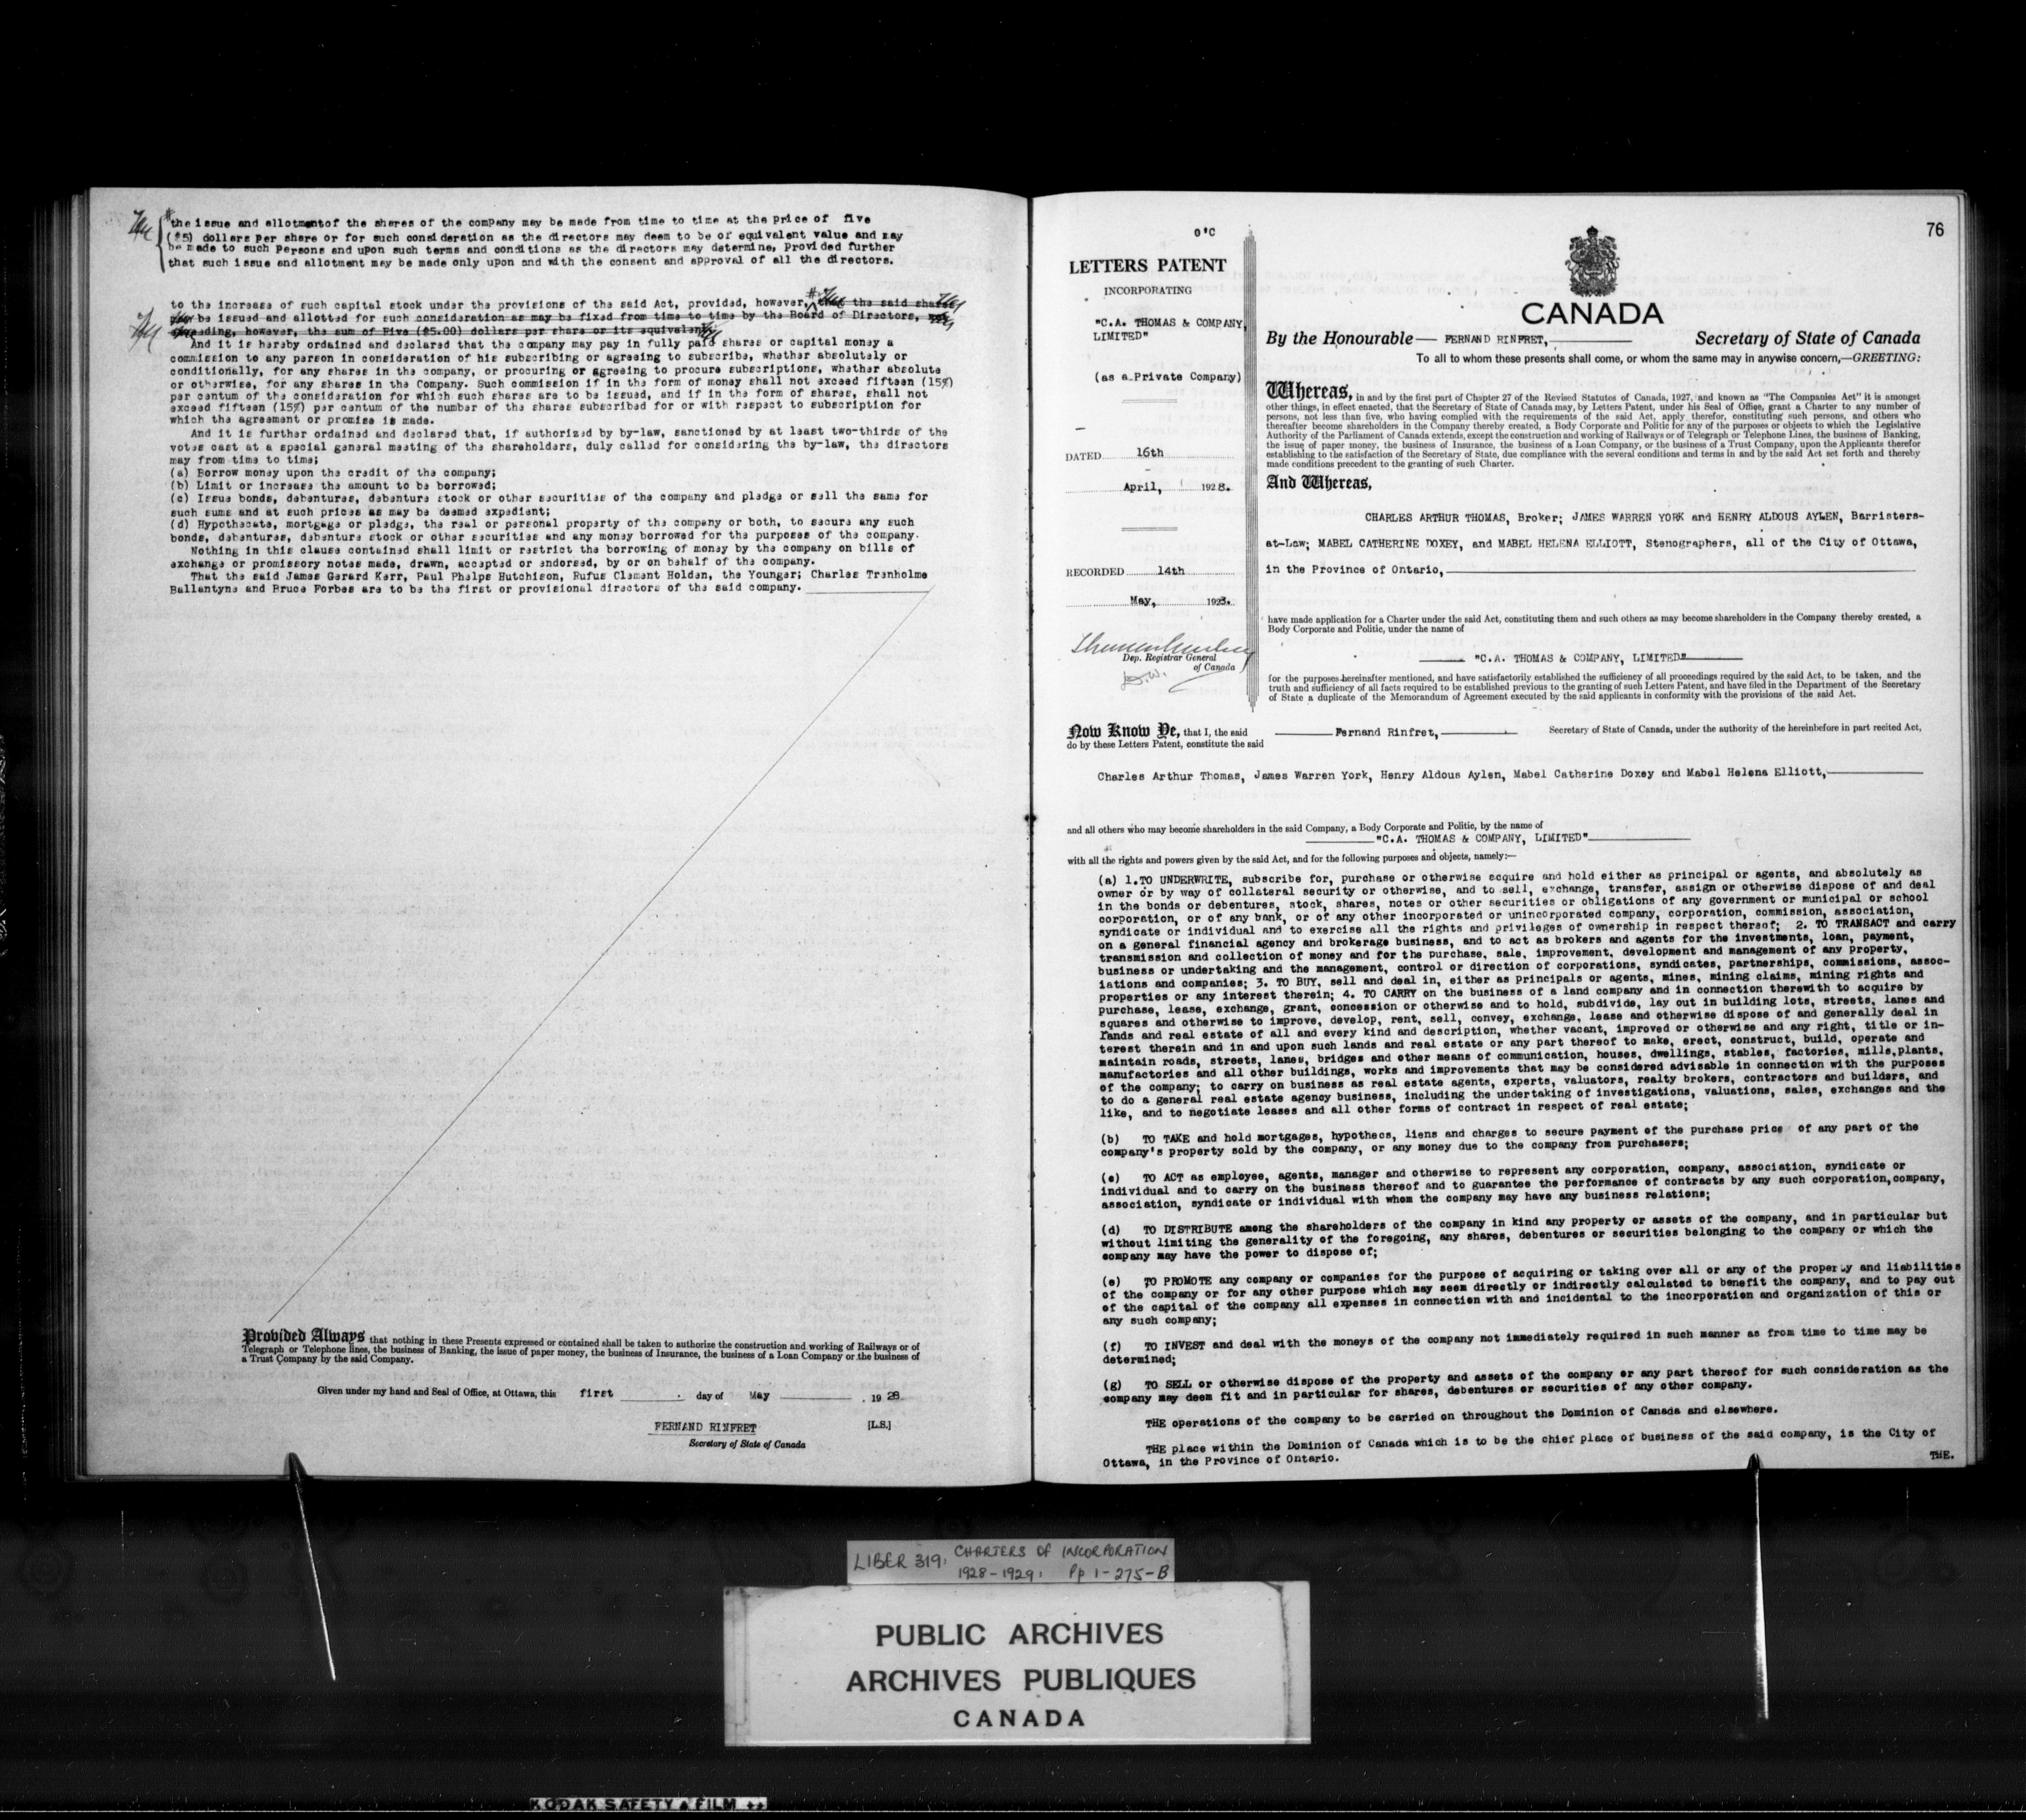 the issue and allotmentof the shares of the company may be made from time to time at the price of five
($5) dollars per share or for such consideration as the directors may deem to be of equivalent value and may
be made to such Persons and upon such terms and conditions as the directors may determine, Provided further
that such issue and allotment may be made only upon and with the consent and approval of all the directors.
to the increase of such capital stock under the provisions of the said Act, provided, however, that the said shares
may be issued and allotted for such consideration as may be fixed from time to time by the Board of Directors,
however, the sum of Five ($5.00) dollars per share or its equivalent
And it is hereby ordained and declared that the company may pay in fully paid shares or capital money a
commission to any person in consideration of his subscribing or agreeing to subscribe, whether absolutely or
conditionally, for any shares in the company, or procuring or agreeing to procure subscriptions, whether absolute
or otherwise, for any shares in the Company. Such commission if in the form of money shall not exceed fifteen (15%)
per centum of the consideration for which such shares are to be issued, and if in the form of shares, shall not
exceed fifteen (15%) per centum of the number of the shares subscribed for or with respect to subscription for
which the agreement or promise is made.
And it is further ordained and declared that, if authorized by by-law, sanctioned by at least two-thirds of the
votes cast at a special general meeting of the shareholders, duly called for considering the by-law, the directors
may from time to time;
(a) Borrow money upon the credit of the company;
(b) Limit or increase the amount to be borrowed;
(c) Issue bonds, debentures, debenture stock or other securities of the company and pledge or sell the same for
such sums and at such prices as may be deemed expedient;
(d) Hypothecate, mortgage or pledge, the real or personal property of the company or both, to secure any such
bonds, debentures, debenture stock or other securities and any money borrowed for the purposes of the company.
Nothing in this clause contained shall limit or restrict the borrowing of money by the company on bills of
exchange or promissory notes made, drawn, accepted or endorsed, by or on behalf of the company.
That the said James Gerard Kerr, Paul Phelps Hutchison, Rufus Clement Holden, the Younger; Charles Trenholme
Ballantyne and Bruce Forbes are to be the first or provisional directors of the said company.
Provided Always that nothing in these Presents expressed or contained shall be taken to authorize the construction and working of Railways or of
Telegraph or Telephone lines, the business of Banking, the issue of paper money, the business of Insurance, the business of a Loan Company or the business of
a Trust Company by the said Company.
Given under my hand and Seal of Office, at Ottawa, this first day of May 1928
FERNAND RINFRET [L.S.]
Secretary of State of Canada
76
O'C
LETTERS PATENT
INCORPORATING
"C.A. THOMAS & COMPANY,
LIMITED"
(as a Private Company)
DATED 16th
April, 1928.
RECORDED 14th
May, 1928.
Dep. Registrar General
of Canada
CANADA
By the Honourable FERNAND RINFRET, Secretary of State of Canada
To all to whom these presents shall come, or whom the same may in anywise concern,—GREETING:
Whereas, in and by the first part of Chapter 27 of the Revised Statutes of Canada, 1927, and known as "The Companies Act" it is amongst
other things, in effect enacted, that the Secretary of State of Canada may, by Letters Patent, under his Seal of Office, grant a Charter to any number of
persons, not less than five, who having complied with the requirements of the said Act, apply therefor, constituting such persons, and others who
thereafter become shareholders in the Company thereby created, a Body Corporate and Politic for any of the purposes or objects to which the Legislative
Authority of the Parliament of Canada extends, except the construction and working of Railways or of Telegraph or Telephone Lines, the business of Banking,
the issue of paper money, the business of Insurance, the business of a Loan Company, or the business of a Trust Company, upon the Applicants therefor
establishing to the satisfaction of the Secretary of State, due compliance with the several conditions and terms in and by the said Act set forth and thereby
made conditions precedent to the granting of such Charter.
And Whereas,
CHARLES ARTHUR THOMAS, Broker; JAMES WARREN YORK and HENRY ALDOUS AYLEN, Barristers-
at-Law; MABEL CATHERINE DOXEY, and MABEL HELENA ELLIOTT, Stenographers, all of the City of Ottawa,
in the Province of Ontario,
have made application for a Charter under the said Act, constituting them and such others as may become shareholders in the Company thereby created, a
Body Corporate and Politic, under the name of
"C.A. THOMAS & COMPANY, LIMITED"
for the purposes hereinafter mentioned, and have satisfactorily established the sufficiency of all proceedings required by the said Act, to be taken, and the
truth and sufficiency of all facts required to be established previous to the granting of such Letters Patent, and have filed in the Department of the Secretary
of State a duplicate of the Memorandum of Agreement executed by the said applicants in conformity with the provisions of the said Act.
Now Know Ye, that I, the said Fernand Rinfret, Secretary of State of Canada, under the authority of the hereinbefore in part recited Act,
do by these Letters Patent, constitute the said
Charles Arthur Thomas, James Warren York, Henry Aldous Aylen, Mabel Catherine Doxey and Mabel Helena Elliott,
and all others who may become shareholders in the said Company, a Body Corporate and Politic, by the name of
"C.A. THOMAS & COMPANY, LIMITED"
with all the rights and powers given by the said Act, and for the following purposes and objects, namely:—
(a) 1.TO UNDERWRITE, subscribe for, purchase or otherwise acquire and hold either as principal or agents, and absolutely as
owner or by way of collateral security or otherwise, and to sell, exchange, transfer, assign or otherwise dispose of and deal
in the bonds or debentures, stock, shares, notes or other securities or obligations of any government or municipal or school
corporation, or of any bank, or of any other incorporated or unincorporated company, corporation, commission, association,
syndicate or individual and to exercise all the rights and privileges of ownership in respect thereof; 2. TO TRANSACT and carry
on a general financial agency and brokerage business, and to act as brokers and agents for the investments, loan, payment,
transmission and collection of money and for the purchase, sale, improvement, development and management of any property,
business or undertaking and the management, control or direction of corporations, syndicates, partnerships, commissions, assoc-
iations and companies; 3. TO BUY, sell and deal in, either as principals or agents, mines, mining claims, mining rights and
properties or any interest therein; 4. TO CARRY on the business of a land company and in connection therewith to acquire by
purchase, lease, exchange, grant, concession or otherwise and to hold, subdivide, lay out in building lots, streets, lanes and
squares and otherwise to improve, develop, rent, sell, convey, exchange, lease and otherwise dispose of and generally deal in
lands and real estate of all and every kind and description, whether vacant, improved or otherwise and any right, title or in-
terest therein and in and upon such lands and real estate or any part thereof to make, erect, construct, build, operate and
maintain roads, streets, lanes, bridges and other means of communication, houses, dwellings, stables, factories, mills,plants,
manufactories and all other buildings, works and improvements that may be considered advisable in connection with the purposes
of the company; to carry on business as real estate agents, experts, valuators, realty brokers, contractors and builders, and
to do a general real estate agency business, including the undertaking of investigations, valuations, sales, exchanges and the
like, and to negotiate leases and all other forms of contract in respect of real estate;
(b) TO TAKE and hold mortgages, hypothecs, liens and charges to secure payment of the purchase price of any part of the
company's property sold by the company, or any money due to the company from purchasers;
(c) TO ACT as employee, agents, manager and otherwise to represent any corporation, company, association, syndicate or
individual and to carry on the business thereof and to guarantee the performance of contracts by any such corporation,company,
association, syndicate or individual with whom the company may have any business relations;
(d) TO DISTRIBUTE among the shareholders of the company in kind any property or assets of the company, and in particular but
without limiting the generality of the foregoing, any shares, debentures or securities belonging to the company or which the
company may have the power to dispose of;
(e) TO PROMOTE any company or companies for the purpose of acquiring or taking over all or any of the property and liabilities
of the company or for any other purpose which may seem directly or indirectly calculated to benefit the company, and to pay out
of the capital of the company all expenses in connection with and incidental to the incorporation and organization of this or
any such company;
(f) TO INVEST and deal with the moneys of the company not immediately required in such manner as from time to time may be
determined;
(g) TO SELL or otherwise dispose of the property and assets of the company or any part thereof for such consideration as the
company may deem fit and in particular for shares, debentures or securities of any other company.
THE operations of the company to be carried on throughout the Dominion of Canada and elsewhere.
THE place within the Dominion of Canada which is to be the chief place of business of the said company, is the City of
Ottawa, in the Province of Ontario.
THE.
LIBER 319: CHARTERS OF INCORPORATION
1928-1929: Pp 1-275-B
PUBLIC ARCHIVES
ARCHIVES PUBLIQUES
CANADA
KODAK SAFETY FILM